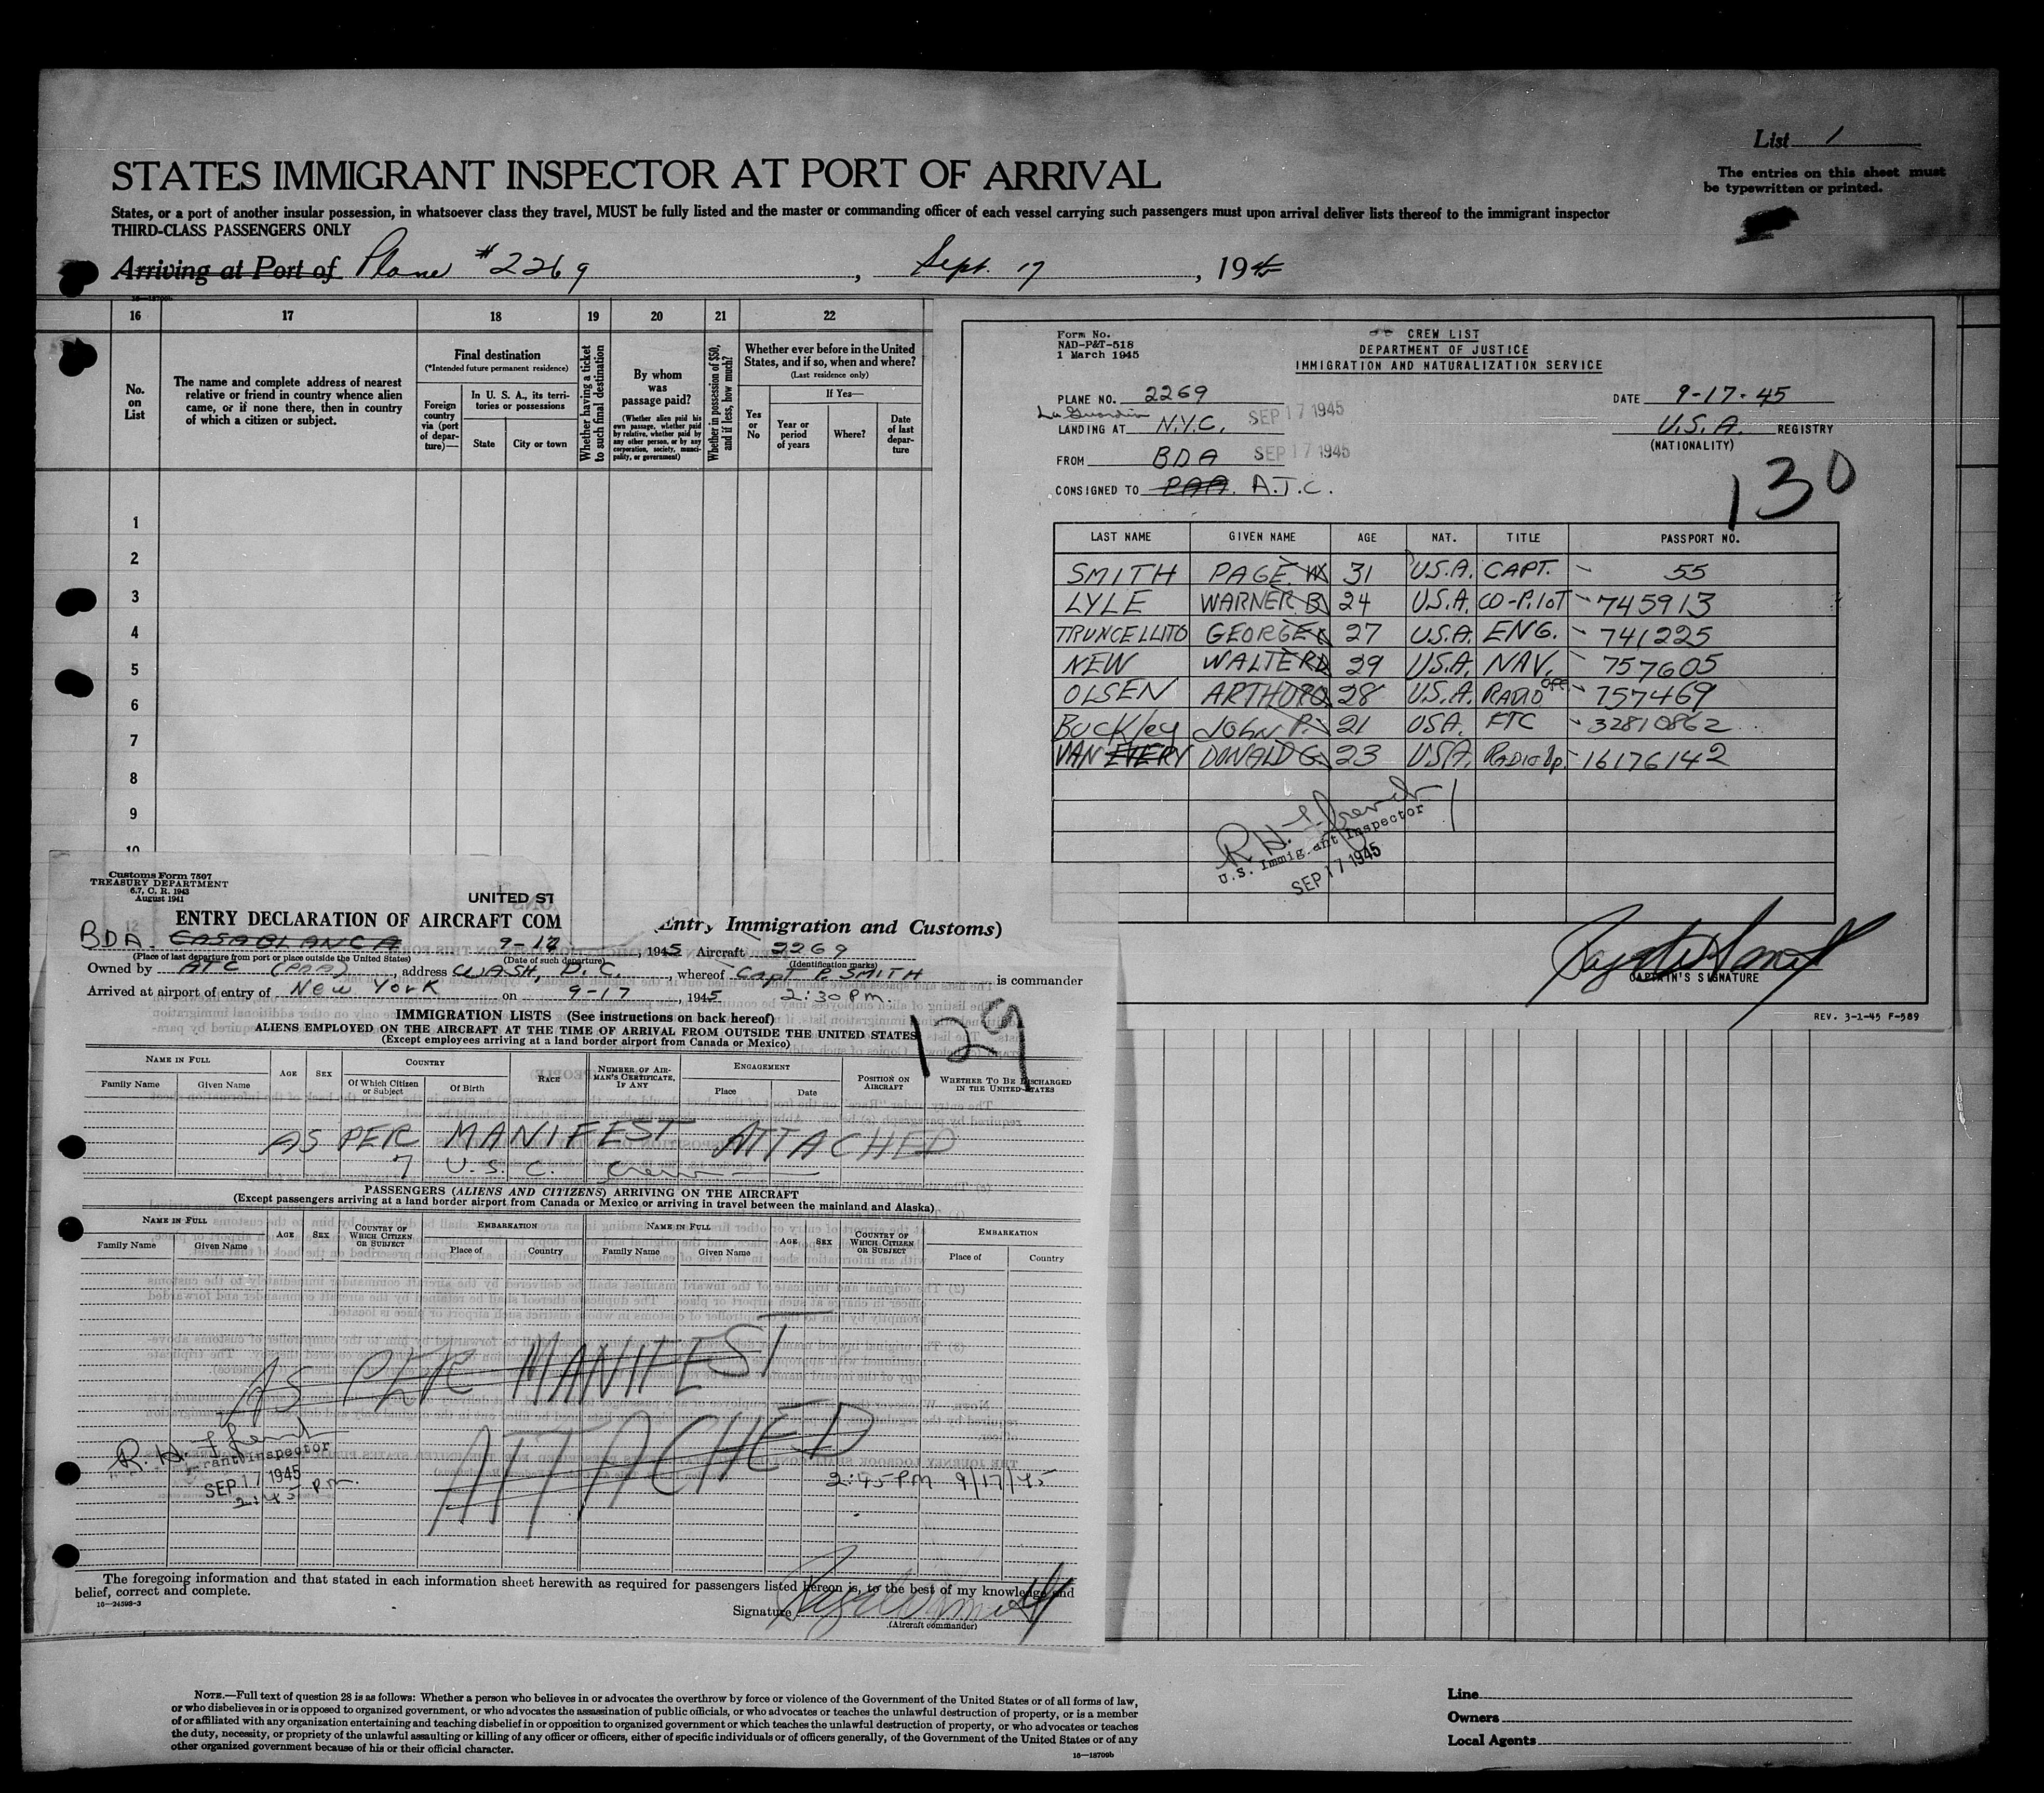 List 1
The entries on this sheet must
be typewritten or printed.
STATES IMMIGRANT INSPECTOR AT PORT OF ARRIVAL
States, or a port of another insular possession, in whatsoever class they travel, MUST be fully listed and the master or commanding officer of each vessel carrying such passengers must upon arrival deliver lists thereof to the immigrant inspector
THIRD-CLASS PASSENGERS ONLY
Arriving at Port of Plane #2269, Sept. 17, 1945
16—18709b
16 17 18 19 20 21 22
No. on List
The name and complete address of nearest relative or friend in country whence alien came, or if none there, then in country of which a citizen or subject.
Final destination
(*Intended future permanent residence)
Foreign country via (port of departure)—
In U. S. A., its territories or possessions
State
City or town
Whether having a ticket to such final destination
By whom was passage paid?
(Whether alien paid his own passage, whether paid by relative, whether paid by any other person, or by any corporation, society, municipality, or government)
Whether in possession of $50, and if less, how much?
Whether ever before in the United States, and if so, when and where?
(Last residence only)
Yes or No
If Yes—
Year or period of years
Where?
Date of last departure
1
2
3
4
5
6
7
8
9
10
Form No.
NAD-P&T-518
1 March 1945
CREW LIST
DEPARTMENT OF JUSTICE
IMMIGRATION AND NATURALIZATION SERVICE
PLANE NO. 2269
DATE 9-17-45
La Guardia
LANDING AT N.Y.C. SEP 17 1945
U.S.A. REGISTRY
(NATIONALITY)
FROM BDA SEP 17 1945
CONSIGNED TO PAA. A.T.C.
130
LAST NAME GIVEN NAME AGE NAT. TITLE PASSPORT NO.
SMITH PAGE W 31 U.S.A. CAPT. - 55
LYLE WARNER B 24 U.S.A. CO-PILOT - 745913
TRUNCELLITO GEORGE 27 U.S.A. ENG. - 741225
NEW WALTER D 29 U.S.A. NAV. - 757605
OLSEN ARTHUR O 28 U.S.A. RADIO OFF - 757469
BUCKley JOHN P. 21 USA. FTC - 32810862
VAN EVERY DONALD G. 23 USA. RADIO Op. - 16176142
R. H.
U.S. Immigrant Inspector
SEP 17 1945
CAPTAIN'S SIGNATURE
REV. 3-1-45 F-589
Customs Form 7507
TREASURY DEPARTMENT
6.7, C. R. 1943
August 1941
UNITED ST
ENTRY DECLARATION OF AIRCRAFT COM (Entry Immigration and Customs)
BDA. CASABLANCA 9-17, 1945 Aircraft 2269
(Place of last departure from port or place outside the United States) (Date of such departure) (Identification marks)
Owned by ATC (PAA), address WASH, D.C., whereof Capt P. SMITH is commander
Arrived at airport of entry of NEW YORK on 9-17, 1945 2:30 PM.
129
IMMIGRATION LISTS (See instructions on back hereof)
ALIENS EMPLOYED ON THE AIRCRAFT AT THE TIME OF ARRIVAL FROM OUTSIDE THE UNITED STATES
(Except employees arriving at a land border airport from Canada or Mexico)
NAME IN FULL
Family Name Given Name
AGE SEX
COUNTRY
Of Which Citizen or Subject Of Birth
RACE
NUMBER OF AIRMAN'S CERTIFICATE, IF ANY
ENGAGEMENT
Place Date
POSITION ON AIRCRAFT
WHETHER TO BE DISCHARGED IN THE UNITED STATES
AS PER MANIFEST ATTACHED
7 U.S.C. Crew
PASSENGERS (ALIENS AND CITIZENS) ARRIVING ON THE AIRCRAFT
(Except passengers arriving at a land border airport from Canada or Mexico or arriving in travel between the mainland and Alaska)
NAME IN FULL AGE SEX COUNTRY OF WHICH CITIZEN OR SUBJECT EMBARKATION NAME IN FULL AGE SEX COUNTRY OF WHICH CITIZEN OR SUBJECT EMBARKATION
Family Name Given Name Place of Country Family Name Given Name Place of Country
AS PER MANIFEST
ATTACHED
R. H.
Inspector
SEP 17 1945
2:45 P.m.
2:45 PM 9/17/45
The foregoing information and that stated in each information sheet herewith as required for passengers listed hereon is, to the best of my knowledge and
belief, correct and complete.
16—24598-3
Signature
(Aircraft commander)
NOTE.—Full text of question 28 is as follows: Whether a person who believes in or advocates the overthrow by force or violence of the Government of the United States or of all forms of law,
or who disbelieves in or is opposed to organized government, or who advocates the assassination of public officials, or who advocates or teaches the unlawful destruction of property, or is a member
of or affiliated with any organization entertaining and teaching disbelief in or opposition to organized government or which teaches the unlawful destruction of property, or who advocates or teaches
the duty, necessity, or propriety of the unlawful assaulting or killing of any officer or officers, either of specific individuals or of officers generally, of the Government of the United States or of any
other organized government because of his or their official character.
16—18709b
Line
Owners
Local Agents